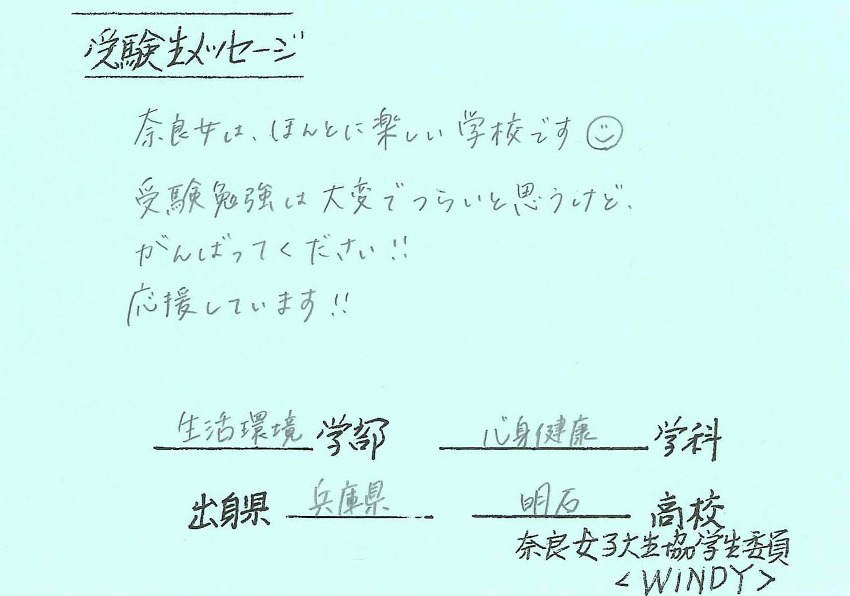 受験生メッセージ
奈良女は、ほんとに楽しい学校です
受験勉強は大変でつらいと思うけど、
がんばってください!!
応援しています!!
生活環境学部 心身健康学科
出身県 兵庫県 明石高校
奈良女子大生協学生委員
<WINDY>